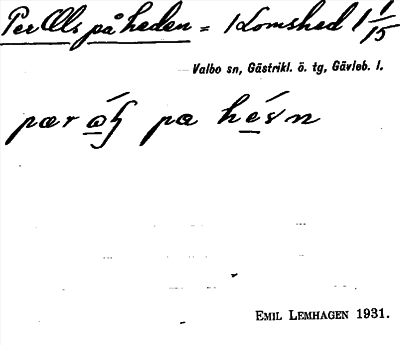 Per Ols på heden = Klomshed 1 1/15
Valbo sn, Gästrikl. ö. tg, Gävleb. l.
pær pa
EMIL LEMHAGEN 1931.